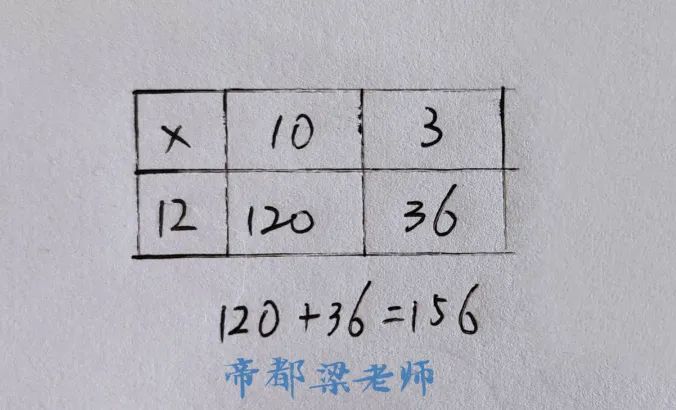 × 10 3
12 120 36
120+36=156
帝都梁老师